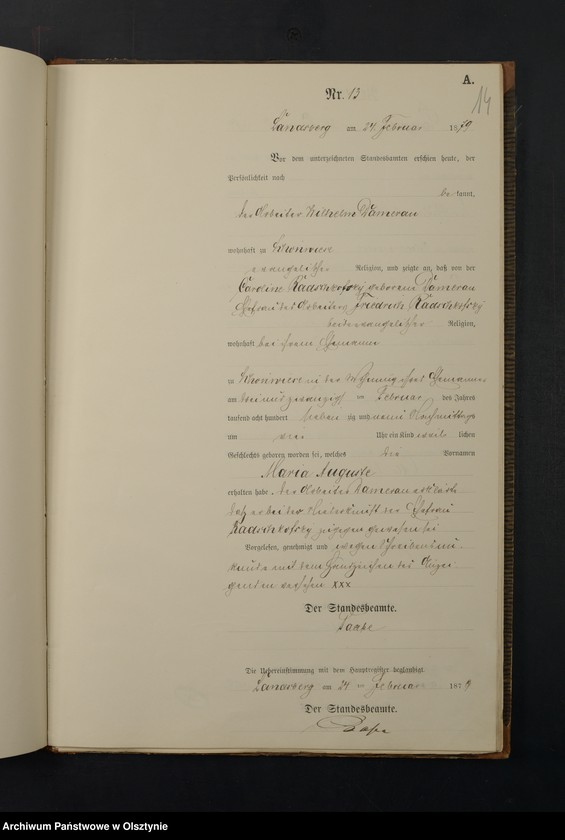 A.
14
Nr. 13
Landsberg am 24 Februar 1879
Vor dem unterzeichneten Standesbeamten erschien heute, der
Persönlichkeit nach
be kannt,
der Arbeiter Wilhelm Damerau
wohnhaft zu
evangelischer Religion, und zeigte an, daß von der
Caroline geborenen Damerau
Ehefrau des Arbeiters Friedrich
beide evangelischer Religion,
wohnhaft bei ihrem Ehemanne
in in der Wohnung ihres Ehemannes
am drei und zwanzigsten Februar des Jahres
tausend acht hundert sieben zig und neun Nachmittags
um Uhr ein Kind weib lichen
Geschlechts geboren worden sei, welches die Vornamen
Maria Auguste
erhalten habe. Der Arbeiter Damerau erklärte
daß er bei der Niederkunft der Ehefrau
zugegen gewesen sei
Vorgelesen, genehmigt und wegen Schreibensun
kunde mit dem Handzeichen des Anzei
genden versehen xxx
Der Standesbeamte.
Die Uebereinstimmung mit dem Hauptregister beglaubigt
Landsberg am 24 ten Februar 1879
Der Standesbeamte.
Archiwum Państwowe w Olsztynie